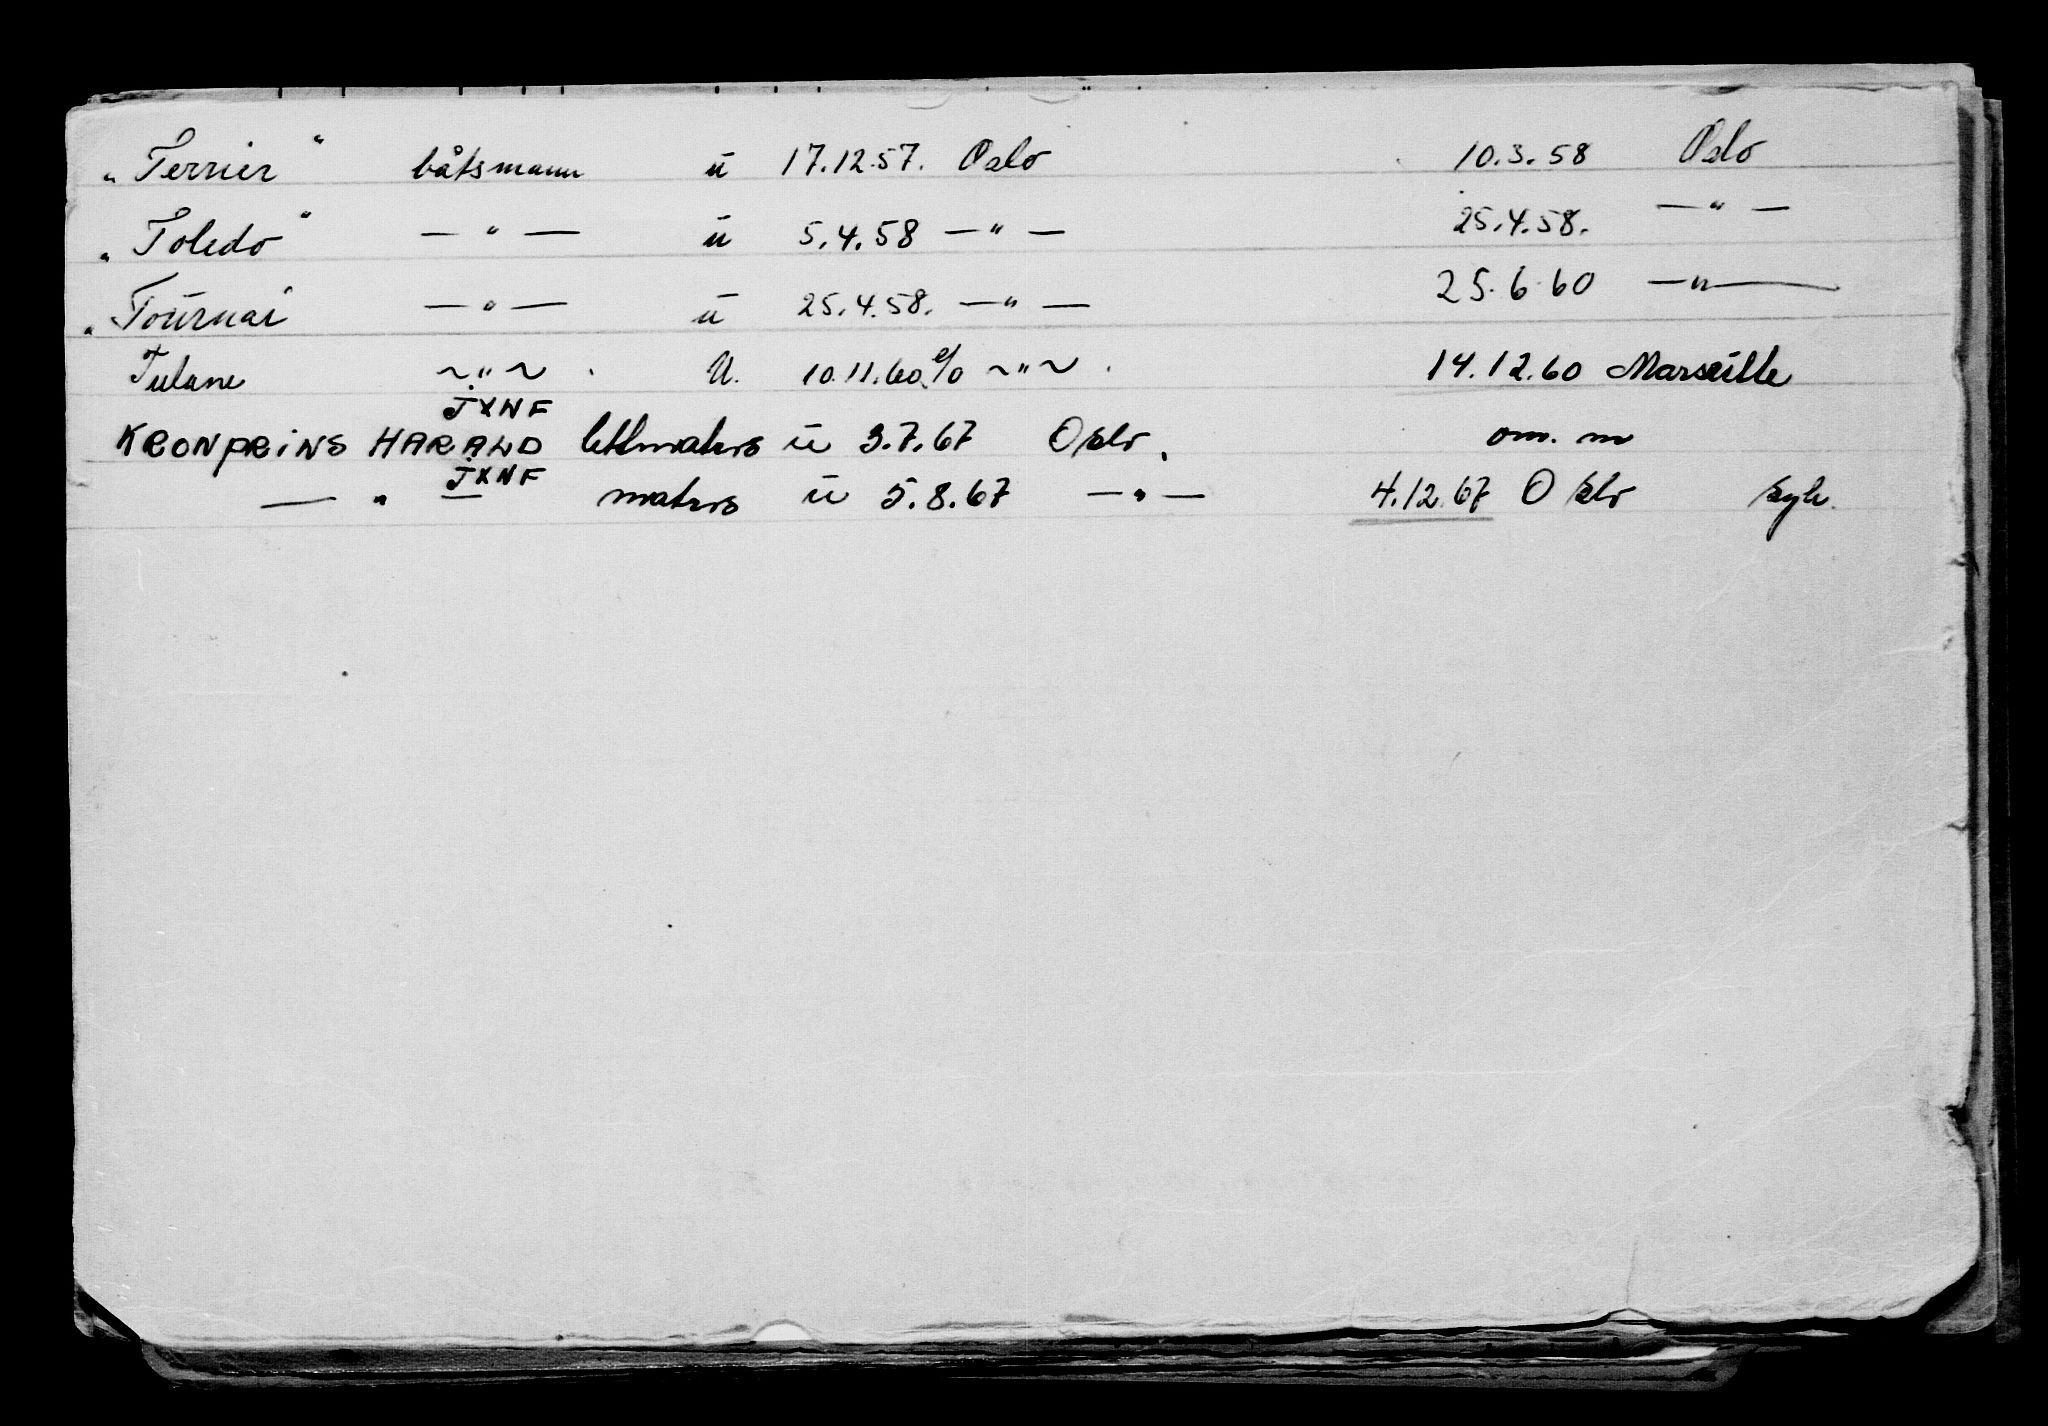 "Terrier" båtsmann u 17.12.57. Oslo 10.3.58 Oslo
"Toledo" — " — u 5.4.58 — " — 25.4.58. — " —
"Tournai — " — u 25.4.58. — " — 25.6.60 — " —
Tulane ~ " ~ U. 10.11.60 ~ " ~ 14.12.60 Marseille
JXNF
KRONPRINS HARALD lettmatros u 3.7.67 Oslo. om. m
JXNF
— " — matros u 5.8.67 — " — 4.12.67 Oslo syk.